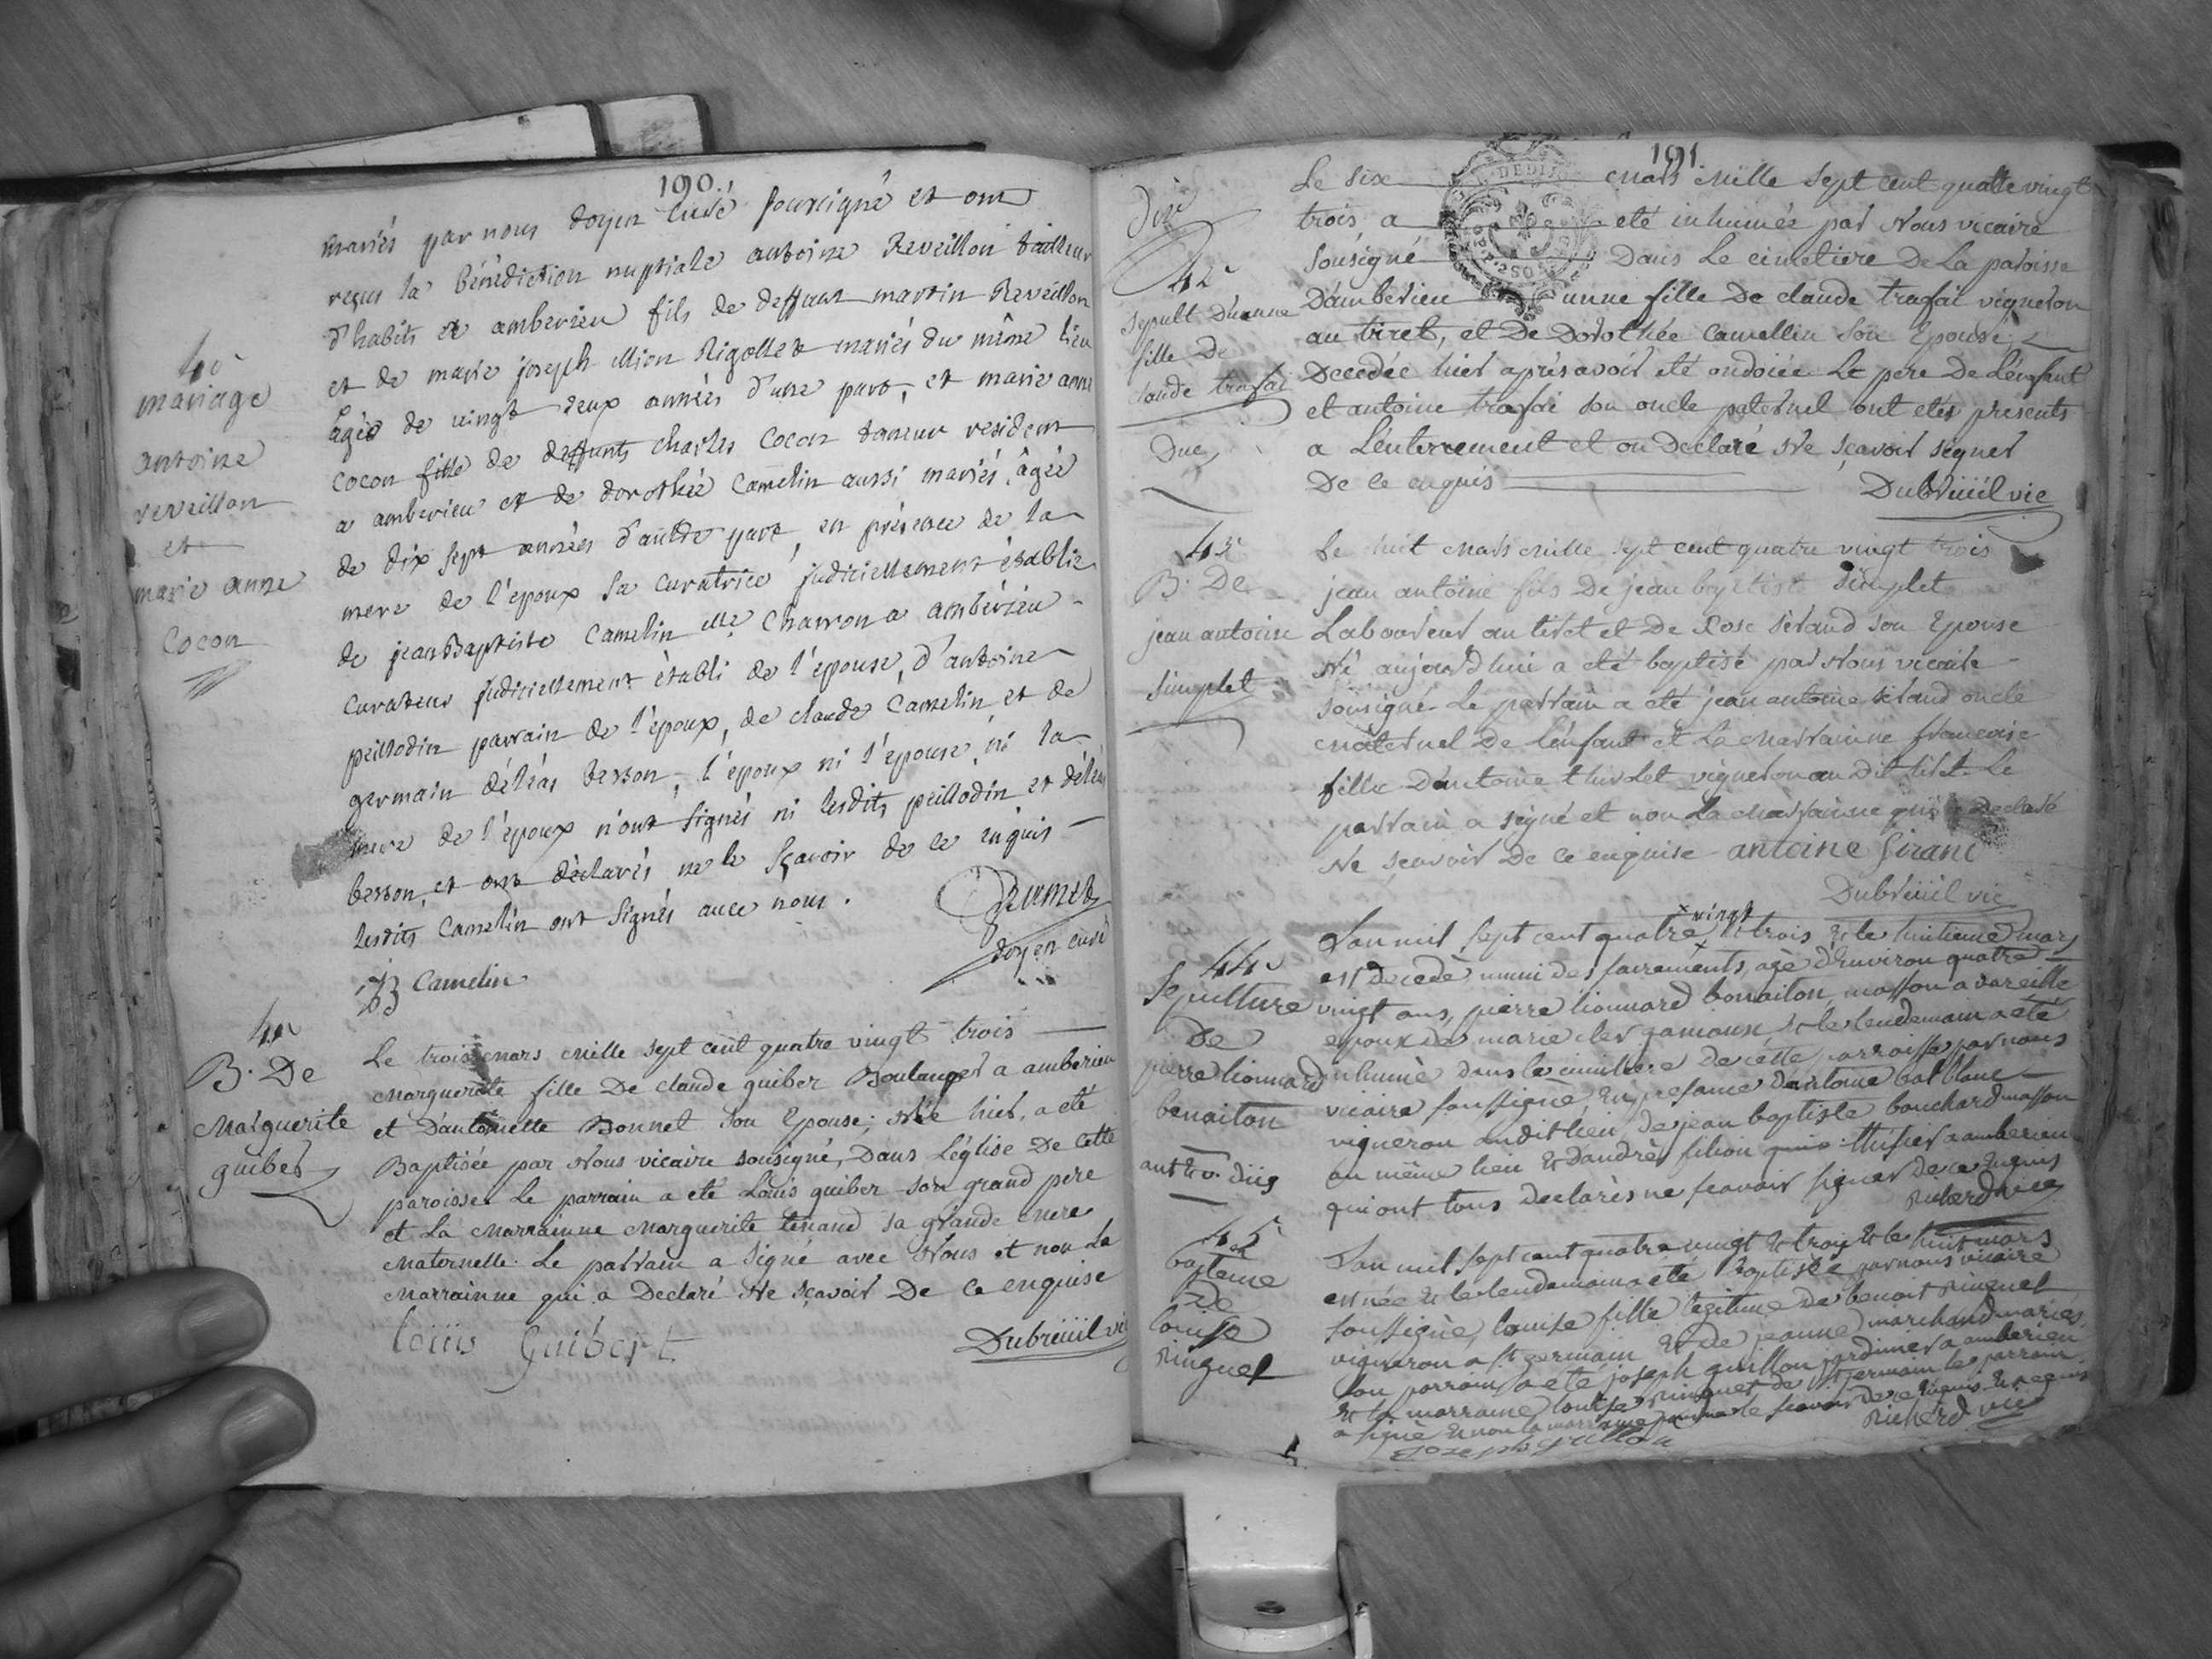 190.
mariés par nous doyen curé soussigné et ont
reçus la bénédiction nuptiale antoine Reveillon tailleur
d'habits a amberieu fils de deffunt martin Reveillon
et de marie joseph Rigollet mariés du même lieu
âgés de vingt deux années d'une part, et marie anne
cocon fille de deffunts charles cocon tanneur resident
a amberieu et de dorothée camelin aussi mariés, âgée
de dix sept années d'autre part, en présence de la
mere de l'epoux sa curatrice judiciellement établie
de jean Baptiste camelin charron a ambérieu
curateur judiciellement établi de l'epouse, d'antoine
peillodin parrain de l'epoux, de claude camelin, et de
germain déléas besson, l'epoux ni l'epouse, ni la
mere de l'epoux n'ont signés ni lesdits peillodin et déléas
besson, et ont déclarés ne le sçavoir de ce enquis
lesdits camelin ont signés avec nous.
doyen curé
Camelin
mariage
antoine
reveillon
et
marie anne
Cocon
B. De
Marguerite
guiber
Le trois mars mille sept cent quatre vingt trois
marguerite fille De claude guiber Boulanger a amberieu
et D'antoinette Bonnet son Epouse; Née hier, a eté
Baptisée par Nous vicaire sousigné, Dans L'église De Cette
paroisse Le parrain a eté Louis guiber son grand pere
et La Marrainne Marguerite tenand sa grande mere
Maternelle. Le parrain a signé avec Nous et non La
Marrainne qui a Declaré Ne sçavoir De Ce enquise
Louis Guibert
Dubreüil vic
191.
42e
sepult D'aunne
fille De
claude trafai
Le six mars Mille sept cent quatre vingt
trois, a eté inhumée par Nous vicaire
sousigné Dans Le cimetiere De La paroisse
D'amberieu unne fille De claude trafai vigneron
au tiret, et De Dorothée Camellin son Epouse,
Decedée hier après avoir eté ondoiée Le pere De L'enfant
et antoine trafai son oncle paternel ont etés presents
a L'enterrement et on Declaré Ne sçavoir signer
De Ce enquis
Dubreüil vic
43e
B. De
jean antoine
simplet
Le huit mars mille sept cent quatre vingt trois
jean antoine fils De jean baptiste simplet
Laboureur au tiret et De Rose sirand son Epouse
Né aujourd'hui a eté baptisé par Nous vicaire
sousigné Le parrain a eté jean antoine sirand oncle
maternel De L'enfant et La Marrainne francoise
fille D'antoine vigneron au Dit tiret Le
parrain a signé et non La Marrainne qui a Declaré
Ne sçavoir De Ce enquise antoine Sirand
Dubreüil vic
44e
Sepulture
De
pierre lionnard
benaiton
x vingt
L'an mil sept cent quatre x & trois & le huitieme mars
est decedé muni des sacrements, agé d'environ quatre
vingt ans, pierre lionnard bonaiton masson a vareille
epoux de marie & le lendemain a eté
inhumé dans le cimitiere de cette parroisse par nous
vicaire soussigné, en presance d'antoine bal blanc
vigneron audit lieu, de jean baptiste bouchard masson
au même lieu & d'andrè filion tissier a amberieu
qui ont tous declarès ne scavoir signer de ce enquis
Richerd vic
45e
bapteme
De
louise
Ringuet
L'an mil sept cent quatre vingt & trois & le huit mars
est née & le lendemain a eté Baptisée par nous vicaire
soussigné, louise fille legitime de benoit Ringuet
vigneron a st germain & de jeanne marchand mariés
son parrain a été joseph guillon jardinier a amberieu
& la marraine louise Ringuet de st germain le parrain
a signé & non la marraine pour ne le scavoir de ce enquis & requis
Richerd vic
Joseph guillon